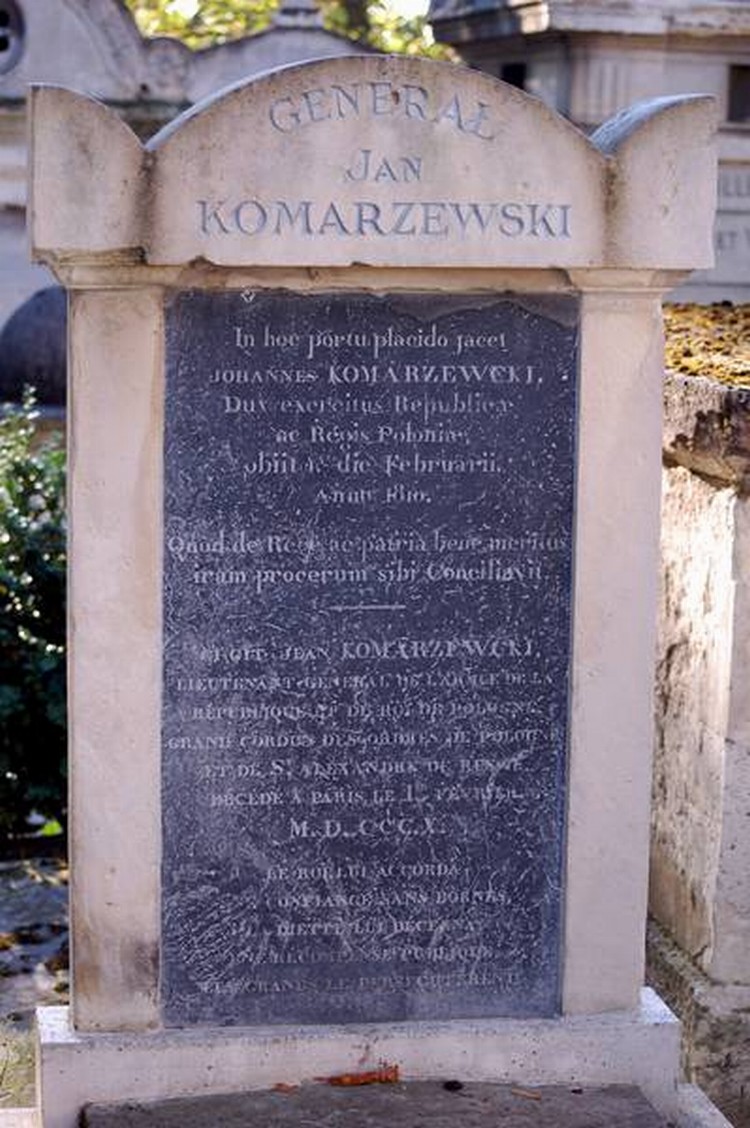 GENERAŁ
JAN
KOMARZEWSKI
In hoc portu placido jacet
JOHANNES KOMARZEWCKI,
Dux exercitus Republicæ
ac Regis Poloniæ,
obiit 1. die Februarii.
Anno 1810.
Quod de Rege ac patria bene meritus
iram procerum sibi Conciliavit.
CI-GIT JEAN KOMARZEWCKI,
LIEUTENANT-GENERAL DE L'ARMÉE DE LA
REPUBLIQUE ET DU ROI DE POLOGNE,
GRAND CORDON DES ORDRES DE POLOGNE
ET DE S. ALEXANDRE DE RUSSIE
DÉCÉDÉ A PARIS LE 1. FÉVRIER
M.D.CCC.X.
LE ROI LUI ACCORDA
CONFIANCE SANS BORNES,
DIETTE LUI DÉCERNA
UNE RECOMPENSE PUBLIQUE
LES GRANDS LE PERSECUTERENT